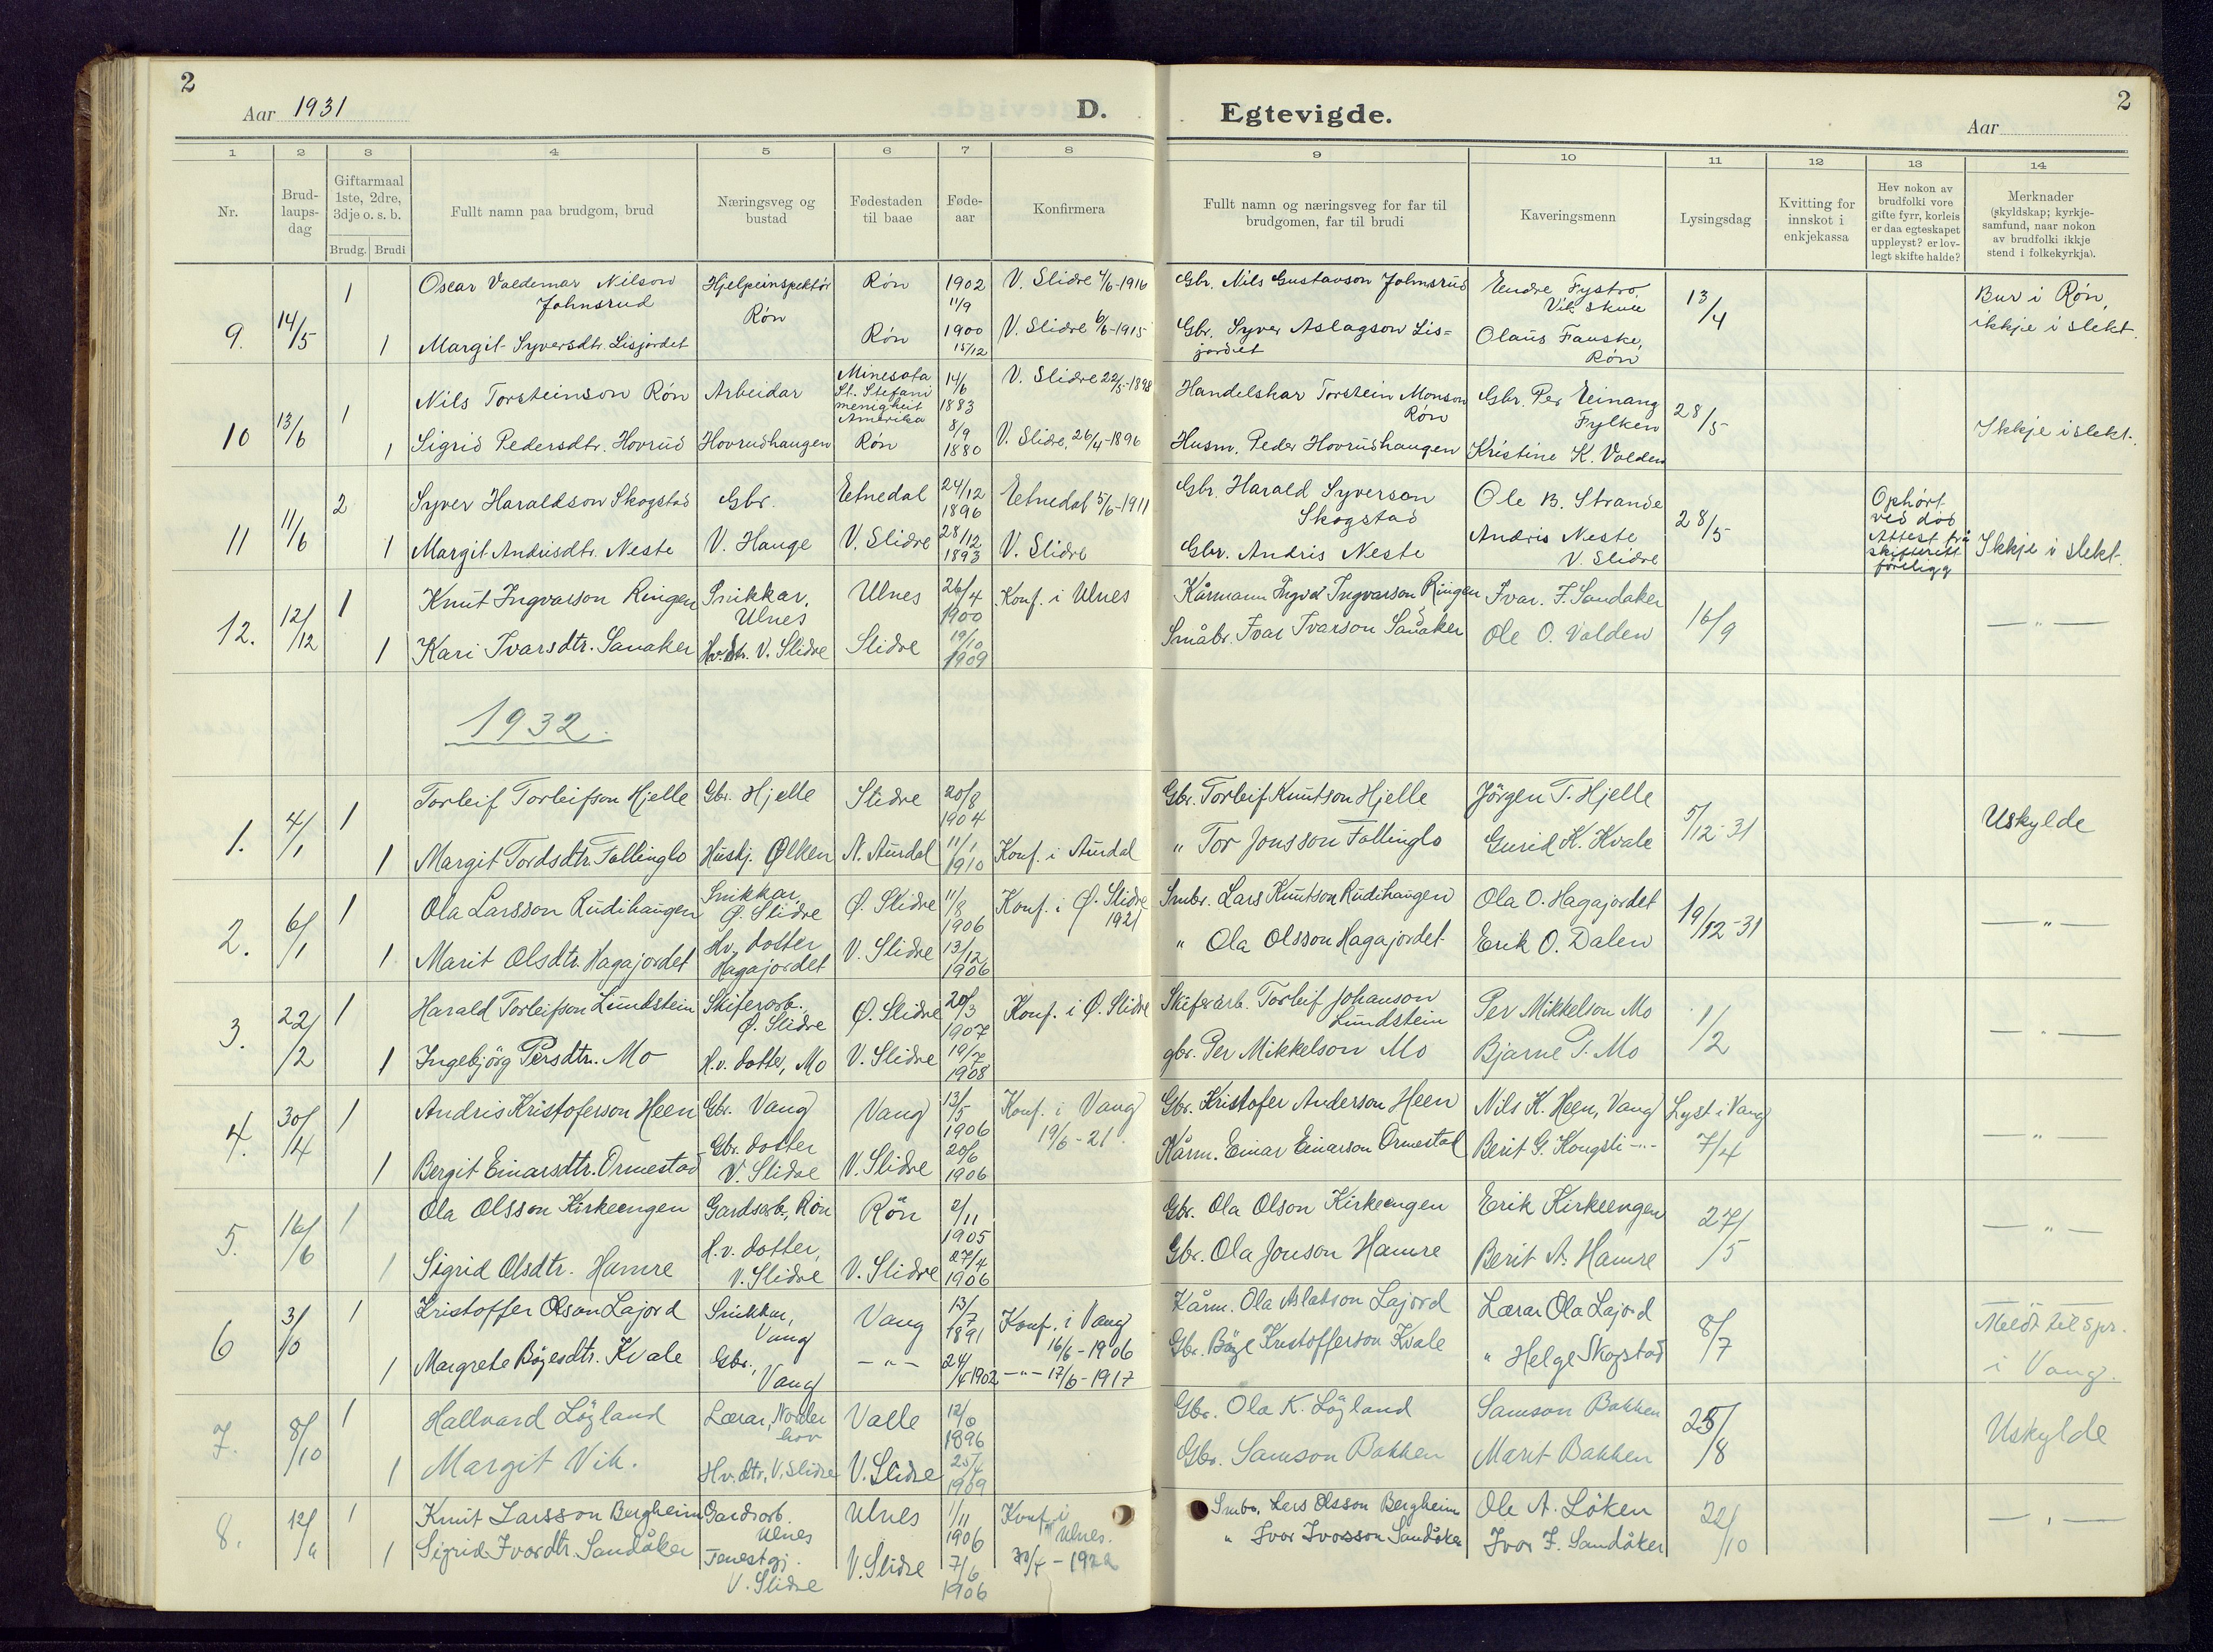 2
Aar 1931
D.
Egtevigde.
2
Aar
1 2 3 4 5 6 7 8 9 10 11 12 13 14
Nr.
Brud-
laups-
dag
Giftarmaal
1ste, 2dre,
3dje o. s. b.
Brudg. Brudi
Fullt namn paa brudgom, brud
Næringsveg og
bustad
Fødestaden
til baae
Føde-
aar
Konfirmera
Fullt namn og næringsveg for far til
brudgomen, far til brudi
Kaveringsmenn
Lysingsdag
Kvitting for
innskot i
enkjekassa
Hev nokon av
brudfolki vore
gifte fyrr, korleis
er daa egteskapet
uppløyst? er lov-
legt skifte halde?
Merknader
(skyldskap; kyrkje-
samfund, naar nokon
av brudfolki ikkje
stend i folkekyrkja).
9. 14/5
1 Oscar Valdemar Nilson
Johnsrud
Hjelpeinspektör
Røn
Røn
1902
11/9
V. Slidre 4/6-1916
Gbr. Nils Gustavson Johnsrud
Endre Fystro
Vik skule
13/4
Bur i Røn,
ikkje i slekt.
1 Margit Syversdtr. Lisjordet
Røn
1900
15/12
V. Slidre 6/6-1915
Gbr. Syver Aslagson Lis-
jordet
Olaus Fauske,
Røn
10 13/6
1 Nils Torsteinson Røn
Arbeidar
Minesota
St. Stefani
menighet
Amerika
14/6
1883
V. Slidre 22/5-1898
Handelskar Torstein Monson
Røn
Gbr. Per Einang
Fylken
28/5
Ikkje i slekt.
1 Sigrid Pedersdtr. Hovrud
Hovrudhaugen
Røn
8/9
1880
V. Slidre, 26/4-1896
Husm. Peder Hovrudhaugen
Kristine K. Volden
11 11/6
2 Syver Haraldson Skogstad
Gbr.
Etnedal
24/12
1896
Etnedal 5/6-1911
Gbr. Harald Syverson
Skogstad
Ole B. Strande
28/5
Ophørt
ved død
Attest frå
skifterett
foreligg
Ikkje i slekt.
1 Margit Andrisdtr. Neste
V. Hauge
V. Slidre
28/12
1893
V. Slidre
Gbr. Andris Neste
Andris Neste
V. Slidre
12. 12/12
1 Knut Ingvarson Ringen
Snikkar,
Ulnes
Ulnes
26/4
1900
Konf. i Ulnes
Kårmann Ingvar Ingvarson Ringen
Ivar. I. Sandaker
16/9
— " —
1 Kari Ivarsdtr. Sanaker
Hv. dtr. V. Slidre
Slidre
19/10
1909
Småbr. Ivar Ivarson Sanaker
Ole O. Volden
1932.
1. 4/1
1 Torleif Torleifson Hjelle
Gbr. Hjelle
Slidre
20/8
1904
Gbr. Torleif Knutson Hjelle
Jörgen T. Hjelle
5/12-31
Uskylde
1 Margit Tordsdtr. Follinglo
Huskj. Ølken
N. Aurdal
11/1
1910
Konf. i Aurdal
" Tor Jonsson Follinglo
Gurid K. Kvale
2. 6/1
1 Ola Larsson Rudihaugen
Snikkar,
Ø. Slidre
Ø. Slidre
11/8
1906
Konf. i Ø. Slidre
1921
Smbr. Lars Knutson Rudihaugen
Ola O. Hagajordet
19/12-31
— " —
1 Marit Olsdtr. Hagajordet
Hv. dotter
Hagajordet
V. Slidre
13/12
1906
" Ola Olsson Hagajordet
Erik O. Dalen
3. 22/2
1 Harald Torleifson Lundstein
Skiferarb.
Ø. Slidre
Ø. Slidre
20/3
1907
Konf. i Ø. Slidre
Skiferarb. Torleif Johanson
Lundstein
Per Mikkelson Mo
1/2
— " —
1 Ingebjörg Persdtr. Mo
H.v. dotter, Mo
V. Slidre
19/7
1908
gbr. Per Mikkelson Mo
Bjarne P. Mo
4. 30/4
1 Andris Kristoferson Heen
Gbr. Vang
Vang
13/5
1906
Konf. i Vang
19/6-21.
Gbr. Kristofer Anderson Heen
Nils K. Heen, Vang
Lyst i Vang
7/4
— " —
1 Bergit Einarsdtr. Ormestad
Gbr. dotter
V. Slidre
V. Slidre
20/6
1906
Kårm. Einar Einarson Ormestad
Berit G. Kongsli —"—
5. 16/6
1 Ola Olsson Kirkeengen
Gardsarb., Røn
Røn
2/11
1905
Gbr. Ola Olson Kirkeengen
Erik Kirkeengen
27/5
— " —
1 Sigrid Olsdtr. Hamre
H.v. dotter,
V. Slidre
V. Slidre
27/4
1906
Gbr. Ola Jonson Hamre
Berit A. Hamre
6 3/10
1 Kristoffer Olson Lajord
Snikkar,
Vang
Vang
13/7
1891
Konf. i Vang
16/6-1906
Kårm. Ola Aslakson Lajord
Lærar Ola Lajord
8/7
Meldt til spr.
i Vang.
1 Margrete Böyesdtr. Kvale
Gbr.,
Vang
— " —
24/4 1902
— " — 17/6-1917
Gbr. Böye Kristofferson Kvale
" Helge Skogstad
7. 8/10
1 Hallvard Löyland
Lærar, Norder
hov
Valle
12/6
1896
Gbr. Ola K. Löyland
Samson Bakken
25/8
Uskylde
1 Margit Vik.
Hv. dtr., V. Slidre
V. Slidre
1909
Gbr. Samson Bakken
Marit Bakken
8.
1 Knut Larsson Bergheim
Gardsarb.
Ulnes
Ulnes
1/11
1906
Konf. i
Ulnes.
Smbr. Lars Olsson Bergheim
Ole A. Löken
22/10
— " —
1 Sigrid Ivarsdtr. Sandåker
Tenestgj.
V. Slidre
V. Slidre
7/6
1906
" Ivar Ivarsson Sandåker
Ivar I. Sandåker